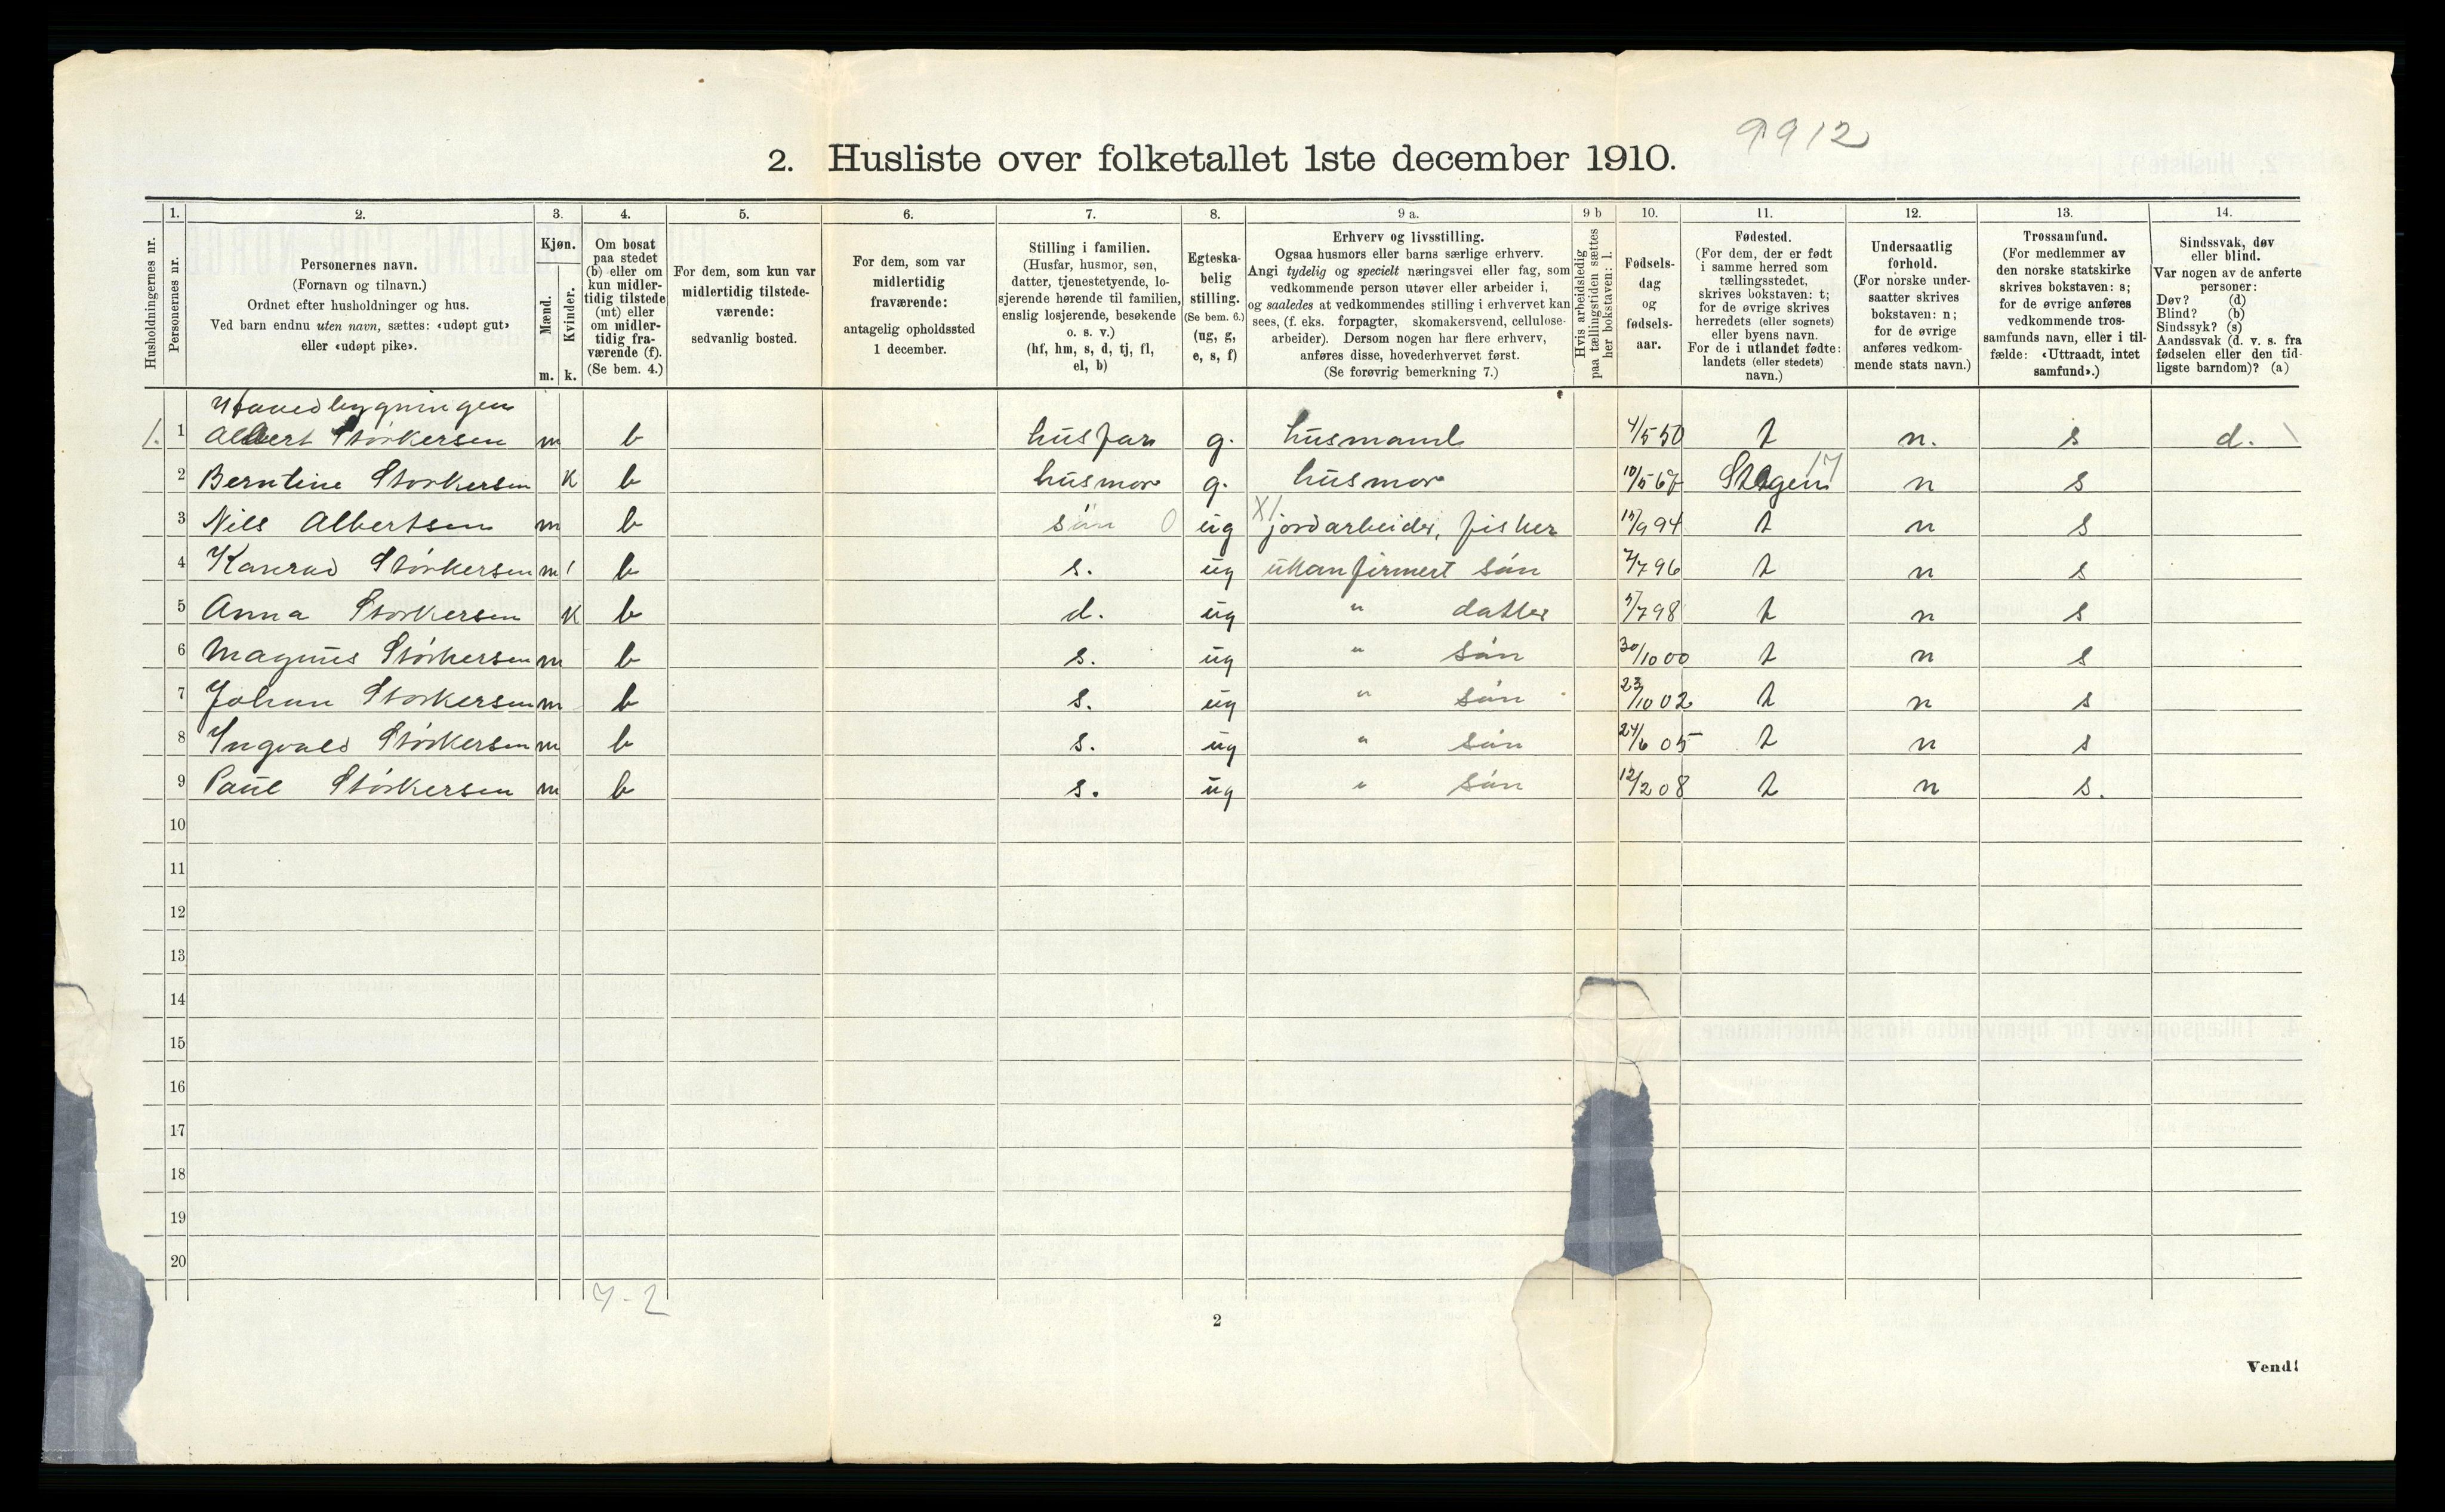 9912
2. Husliste over folketallet 1ste december 1910.
Husholdningernes nr.
1.
Personernes nr.
2.
Personernes navn.
(Fornavn og tilnavn.)
Ordnet efter husholdninger og hus.
Ved barn endnu uten navn, sættes: «udøpt gut»
eller «udøpt pike».
3.
Kjøn.
Mænd.
Kvinder.
m. k.
4.
Om bosat
paa stedet
(b) eller om
kun midler-
tidig tilstede
(mt) eller
om midler-
tidig fra-
værende (f).
(Se bem. 4.)
5.
For dem, som kun var
midlertidig tilstede-
værende:
sedvanlig bosted.
6.
For dem, som var
midlertidig
fraværende:
antagelig opholdssted
1 december.
7.
Stilling i familien.
(Husfar, husmor, søn,
datter, tjenestetyende, lo-
sjerende hørende til familien,
enslig losjerende, besøkende
o. s. v.)
(hf, hm, s, d, tj, fl,
el, b)
8.
Egteska-
belig
stilling.
(Se bem. 6.)
(ug, g,
e, s, f)
9 a.
Erhverv og livsstilling.
Ogsaa husmors eller barns særlige erhverv.
Angi tydelig og specielt næringsvei eller fag, som
vedkommende person utøver eller arbeider i,
og saaledes at vedkommendes stilling i erhvervet kan
sees, (f. eks. forpagter, skomakersvend, cellulose-
arbeider). Dersom nogen har flere erhverv,
anføres disse, hovederhvervet først.
(Se forøvrig bemerkning 7.)
9 b
Hvis arbeidsledig
paa tællingstiden sættes
her bokstaven: l.
10.
Fødsels-
dag
og
fødsels-
aar.
11.
Fødested.
(For dem, der er født
i samme herred som
tællingsstedet,
skrives bokstaven: t;
for de øvrige skrives
herredets (eller sognets)
eller byens navn.
For de i utlandet fødte:
landets (eller stedets)
navn.)
12.
Undersaatlig
forhold.
(For norske under-
saatter skrives
bokstaven: n;
for de øvrige
anføres vedkom-
mende stats navn.)
13.
Trossamfund.
(For medlemmer av
den norske statskirke
skrives bokstaven: s;
for de øvrige anføres
vedkommende tros-
samfunds navn, eller i til-
fælde: «Uttraadt, intet
samfund».)
14.
Sindssvak, døv
eller blind.
Var nogen av de anførte
personer:
Døv? (d)
Blind? (b)
Sindssyk? (s)
Aandssvak (d. v. s. fra
fødselen eller den tid-
ligste barndom)? (a)
Hovedbygningen
1. 1 Albert Störkersen m b husfar g. husmand 4/5 50 t n. s d.
2 Berntine Storkersen K b husmor g. husmor 10/5 67 n s
3 Nils Albertsen m b sön 0 ug X1 jordarbeider, fisker 9 94 t n s
4 Konrad Störkersen m 1 b s. ug ukonfirmert sön 7 96 t n s
5 Anna Storkersen K b d. ug " datter 7 98 t n s
6 Magnus Störkersen m b s. ug " sön 30/10 00 t n s
7 Johan Storkersen m b s. ug " sön 23/10 02 t n s
8 Ingvald Störkersen m b s. ug " sön 24/6 05 t n s
9 Paul Störkersen m b s. ug " sön 12/2 08 t n s.
10
11
12
13
14
15
16
17
18
19
20
7-2
2
Vend!